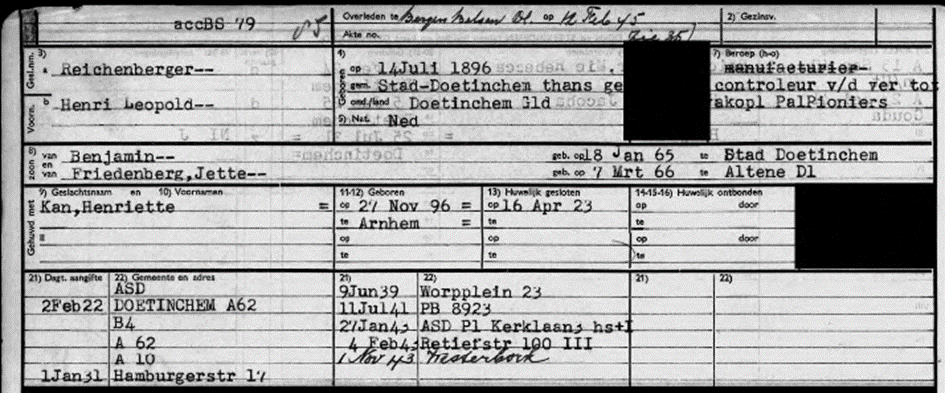 accBS 79
Overleden te Bergen Belsen Dl. op 12 Feb 45
2) Gezinsv.
Akte no.
Gesl.nm. 3) a Reichenberger--
4) op 14Juli 1896
7) Beroep (h-o)
manufacturier-
gem. Stad-Doetinchem thans ge
controleur v/d ver tot
Voorn. b Henri Leopold--
ond./land Doetinchem Gld
akopl PalPioniers
5) Nat. Ned
8) zoon van Benjamin--
geb. op 18 Jan 65 te Stad Doetinchem
en van Friedenberg,Jette--
geb. op 7 Mrt 66 te Altene Dl
9) Geslachtsnaam en 10) Voornamen
11-12) Geboren
13) Huwelijk gesloten
14-15-16) Huwelijk ontbonden
Gehuwd met Kan,Henriette =
op 27 Nov 96 =
op 16 Apr 23
op door
= te Arnhem =
te
te
op
op
op door
te
te
te
21) Dagt. aangifte 22) Gemeente en adres
21) 22)
21) 22)
ASD
9Jun39 Worpplein 23
2Feb22 DOETINCHEM A62
11Jul41 PB 8923
B4
27Jan43 ASD Pl Kerklaan3 hs+I
A 62
4 Feb43 Retiefstr 100 III
A 10
1 Nov 43 Westerbork
1Jan31 Hamburgerstr 17